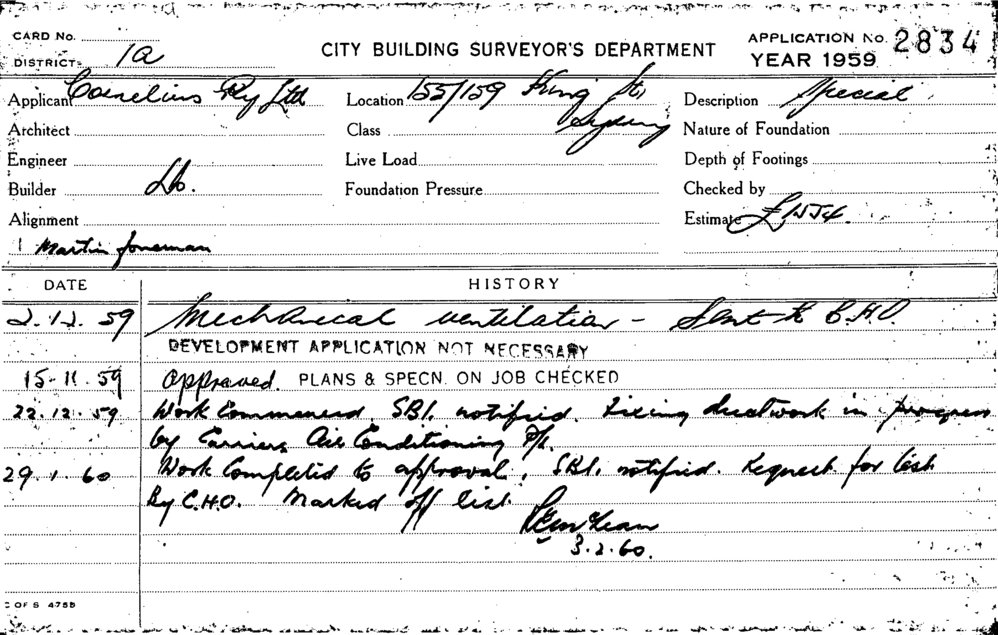 CARD No.
DISTRICT 1a
CITY BUILDING SURVEYOR'S DEPARTMENT
APPLICATION No. 2834
YEAR 1959
Applicant Cornelius Pty Ltd
Location 155/159 King St,
Sydney
Description Special
Architect
Class
Nature of Foundation
Engineer
Live Load
Depth of Footings
Builder Do.
Foundation Pressure
Checked by
Alignment
Estimate £1554
Martin foreman
DATE
HISTORY
2.12.59 Mechanical ventilation - Sent to C.H.O.
DEVELOPMENT APPLICATION NOT NECESSARY
15-11.59 Approved. PLANS & SPECN. ON JOB CHECKED
22.12.59 Work Commenced. SBI. notified. Fixing ductwork in progress
by Carriers Air Conditioning P/L.
29.1.60 Work Completed to approval. SBI. notified. Request for test
By C.H.O. Marked off list
3.2.60.
C OF S 475B